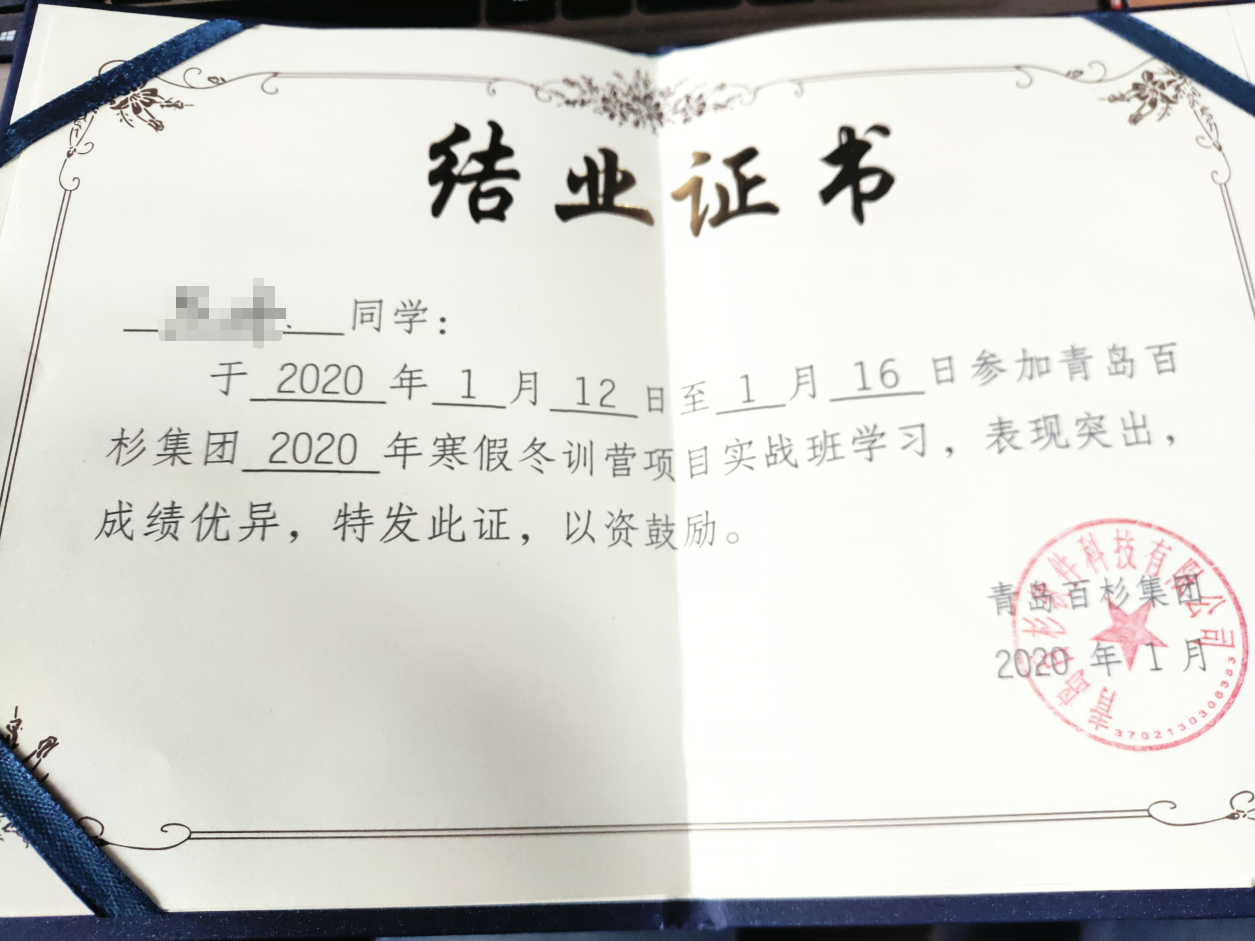 结业证书
同学：
于 2020 年 1 月 12 日至 1 月 16 日参加青岛百
杉集团 2020 年寒假冬训营项目实战班学习，表现突出，
成绩优异，特发此证，以资鼓励。
青岛百杉集团
2020 年 1 月
青岛百杉软件科技有限公司
3702130308383